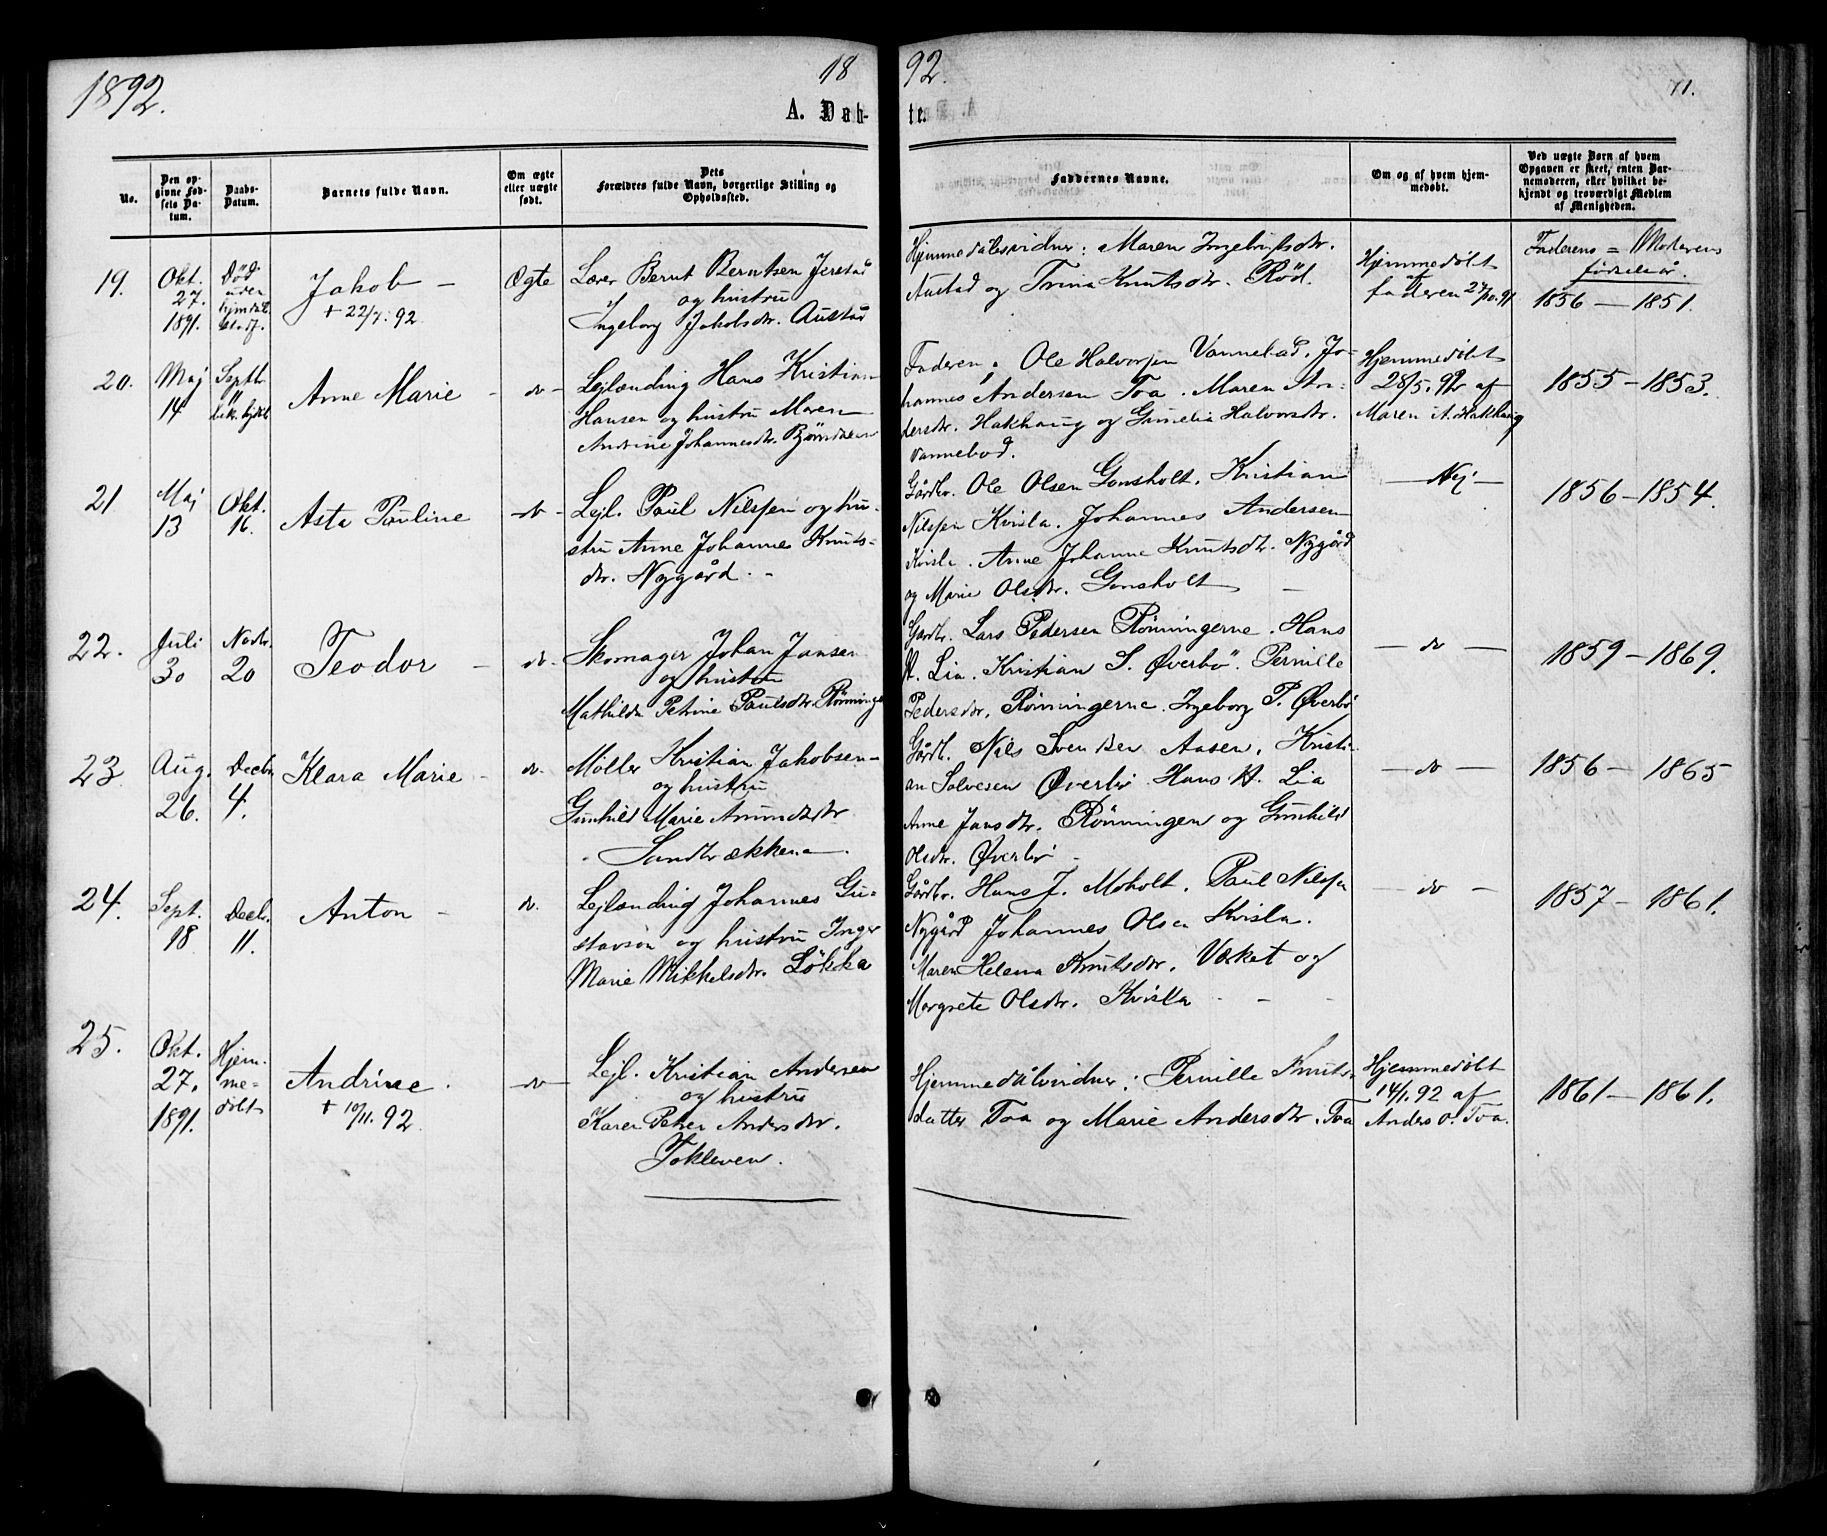 1892.
18 92.
71.
A. Døb- te.
No.
Den op-
givne Fød-
sels Da-
tum.
Daabs-
Datum.
Barnets fulde Navn.
Om ægte
eller uægte
født.
Dets
Forældres fulde Navn, borgerlige Stilling og
Opholdssted.
Faddernes Navne.
Om og af hvem hjem-
medøbt.
Ved uægte Børn af hvem
Opgaven er skeet, enten Bar-
nemoderen, eller hvilket be-
kjendt og troværdigt Medlem
af Menigheden.
Faderens = Moderens
fødselsår.
19.
Okt.
27.
1891.
Død
uden
Jakob —
+ 22/7. 92
Ægte
Lærer Bernt Berntsen Jerstad
og hustru
Ingeborg Jakobsdtr. Austad
Hjemmedåbsvidner: Maren Ingebrigtsdtr.
Austad og Trina Knutsdtr. Röd.
Hjemmedöbt
faderen 27/10.91
1856 — 1851.
20.
Maj
14
Septbr.
11
Anne Marie -
do
Lejlænding Hans Kristian
Hansen og hustru Maren
Andrine Johannesdtr.
Faderen, Ole Halvorsen Vannebod. Jo-
hannes Andersen Toa. Maren An-
dersdtr. Hakhaug og Gunelia Halvorsdtr.
Vannebod.
Hjemmedöbt
28/5. 92 af
Maren A. Hakhaug
1855 - 1853.
21
Maj
13
Okt.
16.
Asta Pauline
do
Lejl. Paul Nilssen og hu-
stru Anne Johannes Knuts-
dtr. Nygård. -
Gårdbr. Ole Olsen Gonsholt. Kristian
Nilssen Kvisla. Johannes Andersen
Kvisla. Anne Johanne Knutsdtr. Nygård
og Marie Olsdtr. Gonsholt
— Nej —
1856 - 1854.
22.
Juli
30
Novbr.
20
Teodor -
do.
Skomager Johan Jansen
og hustru
Mathilde Petrine Paulsdtr. Rönninge
Gårdbr. Lars Pedersen Rönningerne. Hans
H. Lia. Kristian S. Øverbö. Pernille
Pedersdtr. Rönningerne. Ingeborg P. Øverbö
— do —
1859 - 1869.
23
Aug.
26.
Decbr.
4.
Klara Marie -
do.
Møller Kristian Jakobsen
og hustru
Gunhild Marie Amundsdtr
- Sandbrækkene.
Gårdb. Nils Svendsen Aasen, Kristi-
an Salvesen Øverbö Hans H. Lia
Anne Jansdtr. Rönningen og Gunhild
Olsdtr. Øverbö -
— do —
1856 — 1865
24.
Sept.
18
Decbr.
11.
Anton -
do.
Lejlænding Johannes Gu-
stavsön og hustru Inger
Marie Mikkelsdtr. Lökka
Gårdbr. Hans J. Moholt. Paul Nilssen
Nygård Johannes Olsen Kvisla.
Maren Helena Knutsdtr. Vasket og
Margrete Olsdtr. Kvisla - - -
— do —
1857 - 1861.
25.
Okt.
27.
1891.
Hjem-
me-
døbt
Andrine.
+ 10/11. 92
do
Lejl. Kristian Andersen
og hustru
Karen Petrea Andersdtr.
Tokleven.
Hjemmedåbsvidner: Pernille Knuts-
datter Toa og Marie Andersdtr. Toa
Hjemmedöbt
14/1. 92 af
Anders O. Toa.
1861 — 1861.